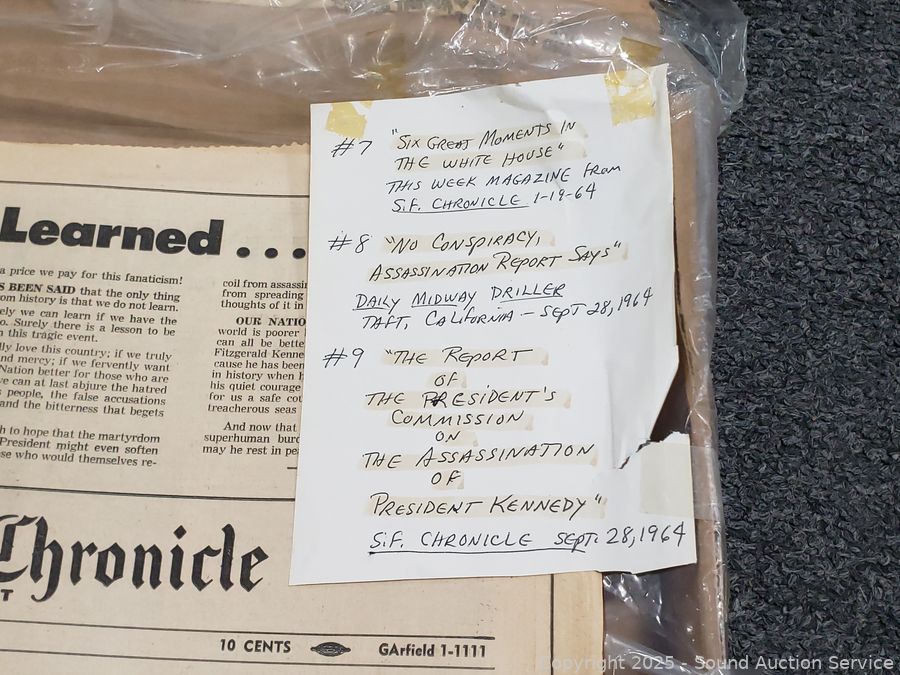 Learned . . .
a price we pay for this fanaticism!
S BEEN SAID that the only thing
om history is that we do not learn.
ely we can learn if we have the
o. Surely there is a lesson to be
n this tragic event.
lly love this country; if we truly
nd mercy; if we fervently want
Nation better for those who are
ve can at last abjure the hatred
s people, the false accusations
and the bitterness that begets
h to hope that the martyrdom
President might even soften
se who would themselves re-
coil from assassin
from spreading
thoughts of it in
OUR NATIO
world is poorer
can all be bette
Fitzgerald Kenne
cause he has been
in history when h
his quiet courage
for us a safe cou
treacherous seas
And now that
superhuman burd
may he rest in pea
Chronicle
T
10 CENTS
GArfield 1-1111
#7 "SIX GREAT MOMENTS IN
THE WHITE HOUSE"
THIS WEEK MAGAZINE from
S.F. CHRONICLE 1-19-64
#8 "NO CONSPIRACY,
ASSASSINATION REPORT SAYS"
DAILY MIDWAY DRILLER
TAFT, CALIFORNIA - SEPT 28, 1964
#9 "THE REPORT
OF
THE PRESIDENT'S
COMMISSION
ON
THE ASSASSINATION
OF
PRESIDENT KENNEDY"
S.F. CHRONICLE SEPT. 28, 1964
Copyright 2025 - Sound Auction Service